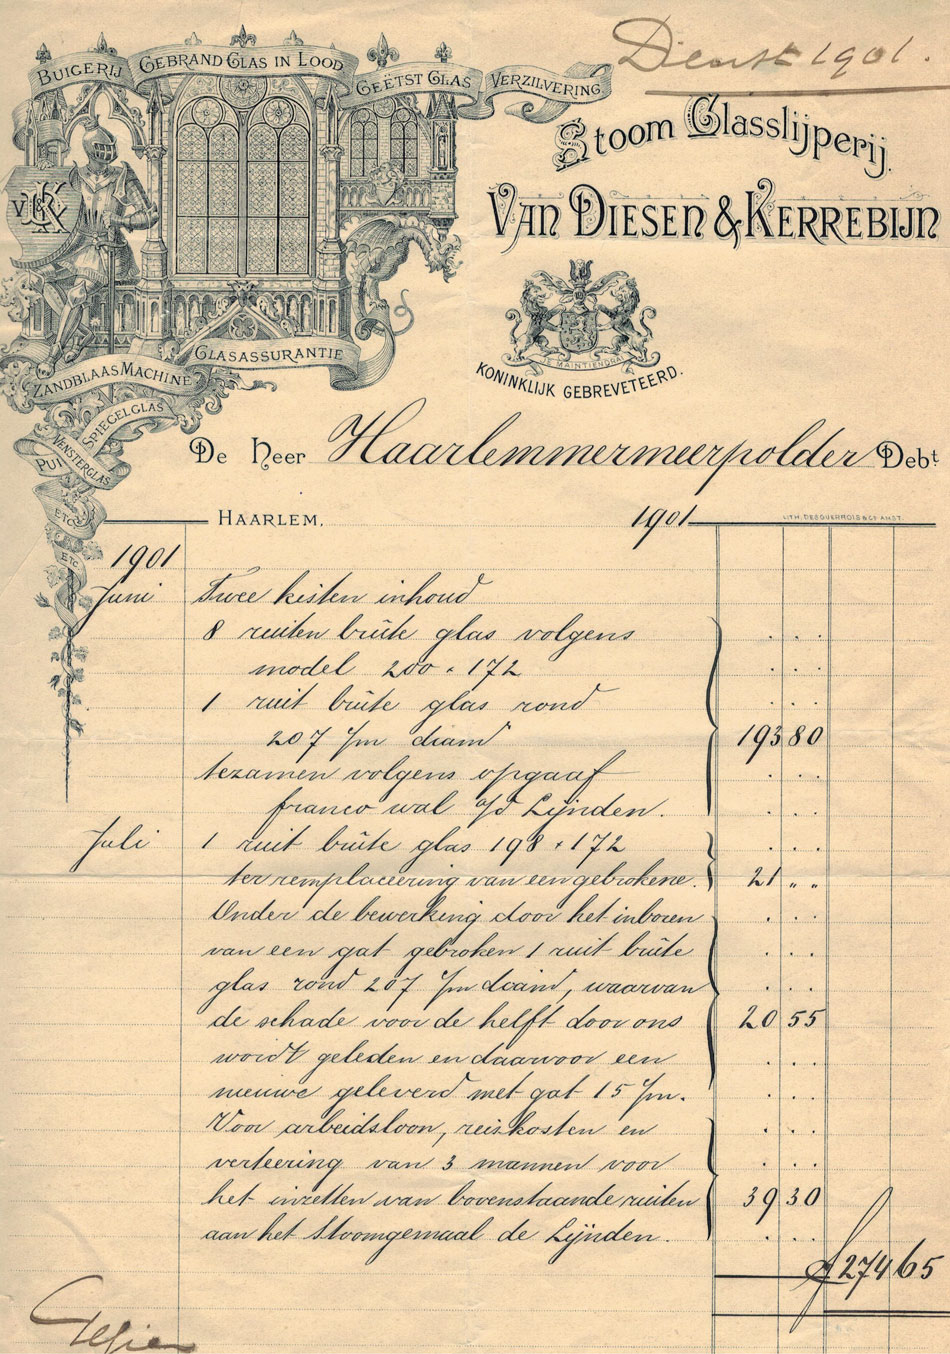 Dienst 1901.
BUIGERIJ GEBRAND GLAS IN LOOD GEËTST GLAS VERZILVERING
Stoom Glasslijperij.
VAN DIESEN & KERREBIJN
JE MAINTIENDRAI
KONINKLIJK GEBREVETEERD.
GLASASSURANTIE
ZANDBLAAS MACHINE
SPIEGELGLAS
VENSTERGLAS
PUI
ETC
ETC
De Heer Haarlemmermeerpolder Debt
HAARLEM, 1901
LITH. DESGUERROIS & Co AMST.
1901
Juni Twee kisten inhoud
8 ruiten brûte glas volgens
model 200 × 172
1 ruit brûte glas rond
207 c/m diam 193 80
tezamen volgens opgaaf
franco wal a/d Lijnden.
Juli 1 ruit brûte glas 198 × 172
ter remplaceering van een gebrokene. 21 " "
Onder de bewerking door het inboren
van een gat gebroken 1 ruit brûte
glas rond 207 c/m diam, waarvan
de schade voor de helft door ons 20 55
wordt geleden en daarvoor een
nieuwe geleverd met gat 15 c/m.
Voor arbeidsloon, reiskosten en
verteering van 3 mannen voor
het inzetten van bovenstaande ruiten 39 30
aan het Stoomgemaal de Lijnden.
f 274 65